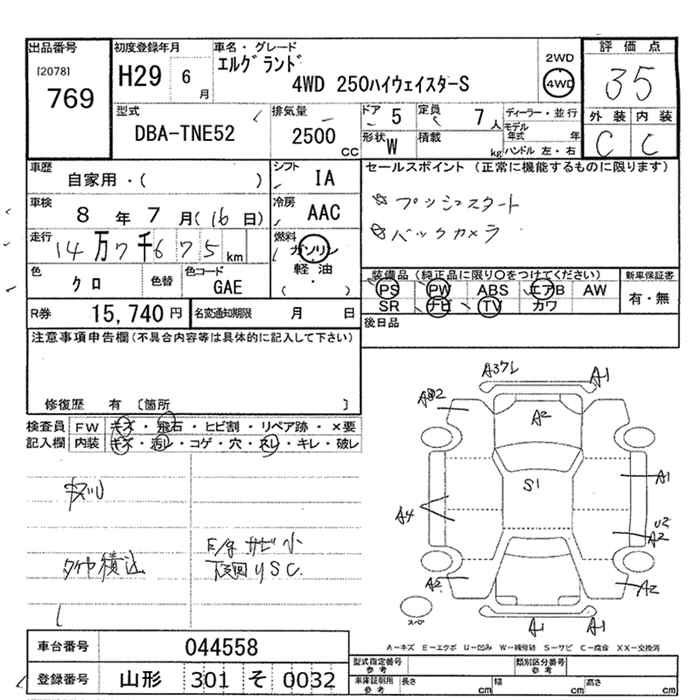 出品番号 初度登録年月 車名・グレード 評価点
[2078] H29 6月 エルグランド 2WD
769 4WD 250ハイウェイスターS 4WD 35
型式 排気量 ドア 5 定員 7人 ディーラー・並行 外装 内装
DBA-TNE52 2500CC 形状 W 積載 kg モデル年式 年 C C
ハンドル 左・右
車歴 シフト セールスポイント (正常に機能するものに限ります)
自家用・( ) IA
車検 8年7月(16日) 冷房 AAC ☆プッシュスタート
走行 14万7千675km 燃料 ガソリン ☆バックカメラ
軽油
( ・ )
色 クロ 色替 色コード GAE 装備品 (純正品に限り○をつけてください) 新車保証書
PS PW ABS エアB AW 有・無
SR ナビ TV カワ
R券 15,740円 名変通知期限 月 日 後日品
注意事項申告欄(不具合内容等は具体的に記入して下さい)
修復歴 有 〔箇所 〕
検査員 FW キズ・飛石・ヒビ割・リペア跡・×要
記入欄 内装 キズ・汚レ・コゲ・穴・スレ・キレ・破レ
A1
A2
S1
A1
A4
U2
A2
A2 A2
A1 A1
スペア
タイヤ積込 サビ小
下廻りSC
A-キズ E-エクボ U-凹み W-補修跡 S-サビ C-腐食 XX-交換済
車台番号 044558
登録番号 山形 301 そ 0032
型式指定番号 参考 類別区分番号 参考
車庫証明用 参考 長さ cm 幅 cm 高さ cm